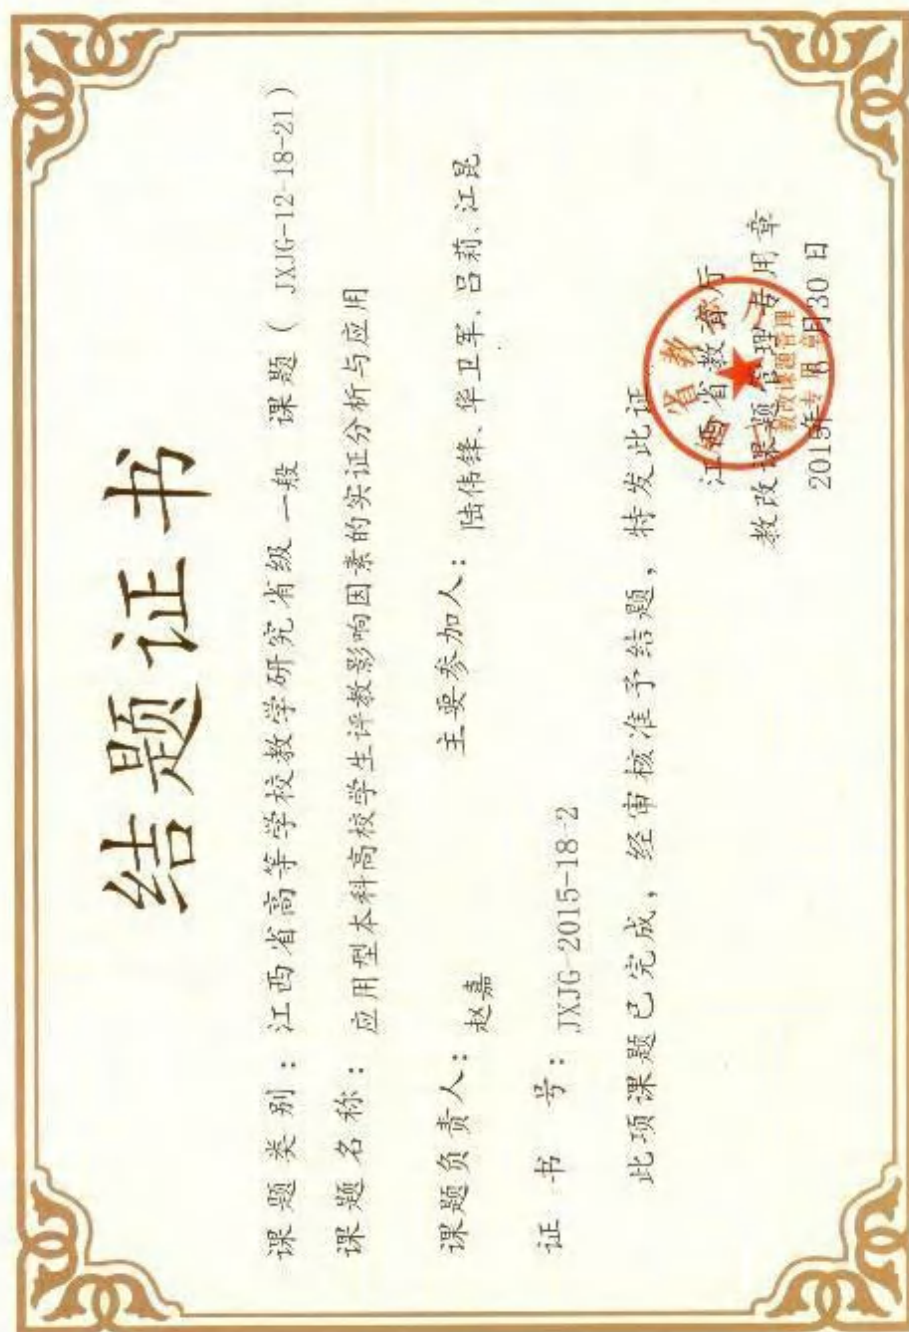 结题证书
课题类别：江西省高等学校教学研究省级 一般 课题（ JXJG-12-18-21）
课题名称：应用型本科高校学生评教影响因素的实证分析与应用
课题负责人：赵嘉 主要参加人：陆伟锋、华卫军、吕莉、江昆
证 书 号：JXJG-2015-18-2
此项课题已完成，经审核准予结题，特发此证
江西省教育厅
教改课题管理专用章
2015年 月30日
省教育厅
教改课题管理
专用章